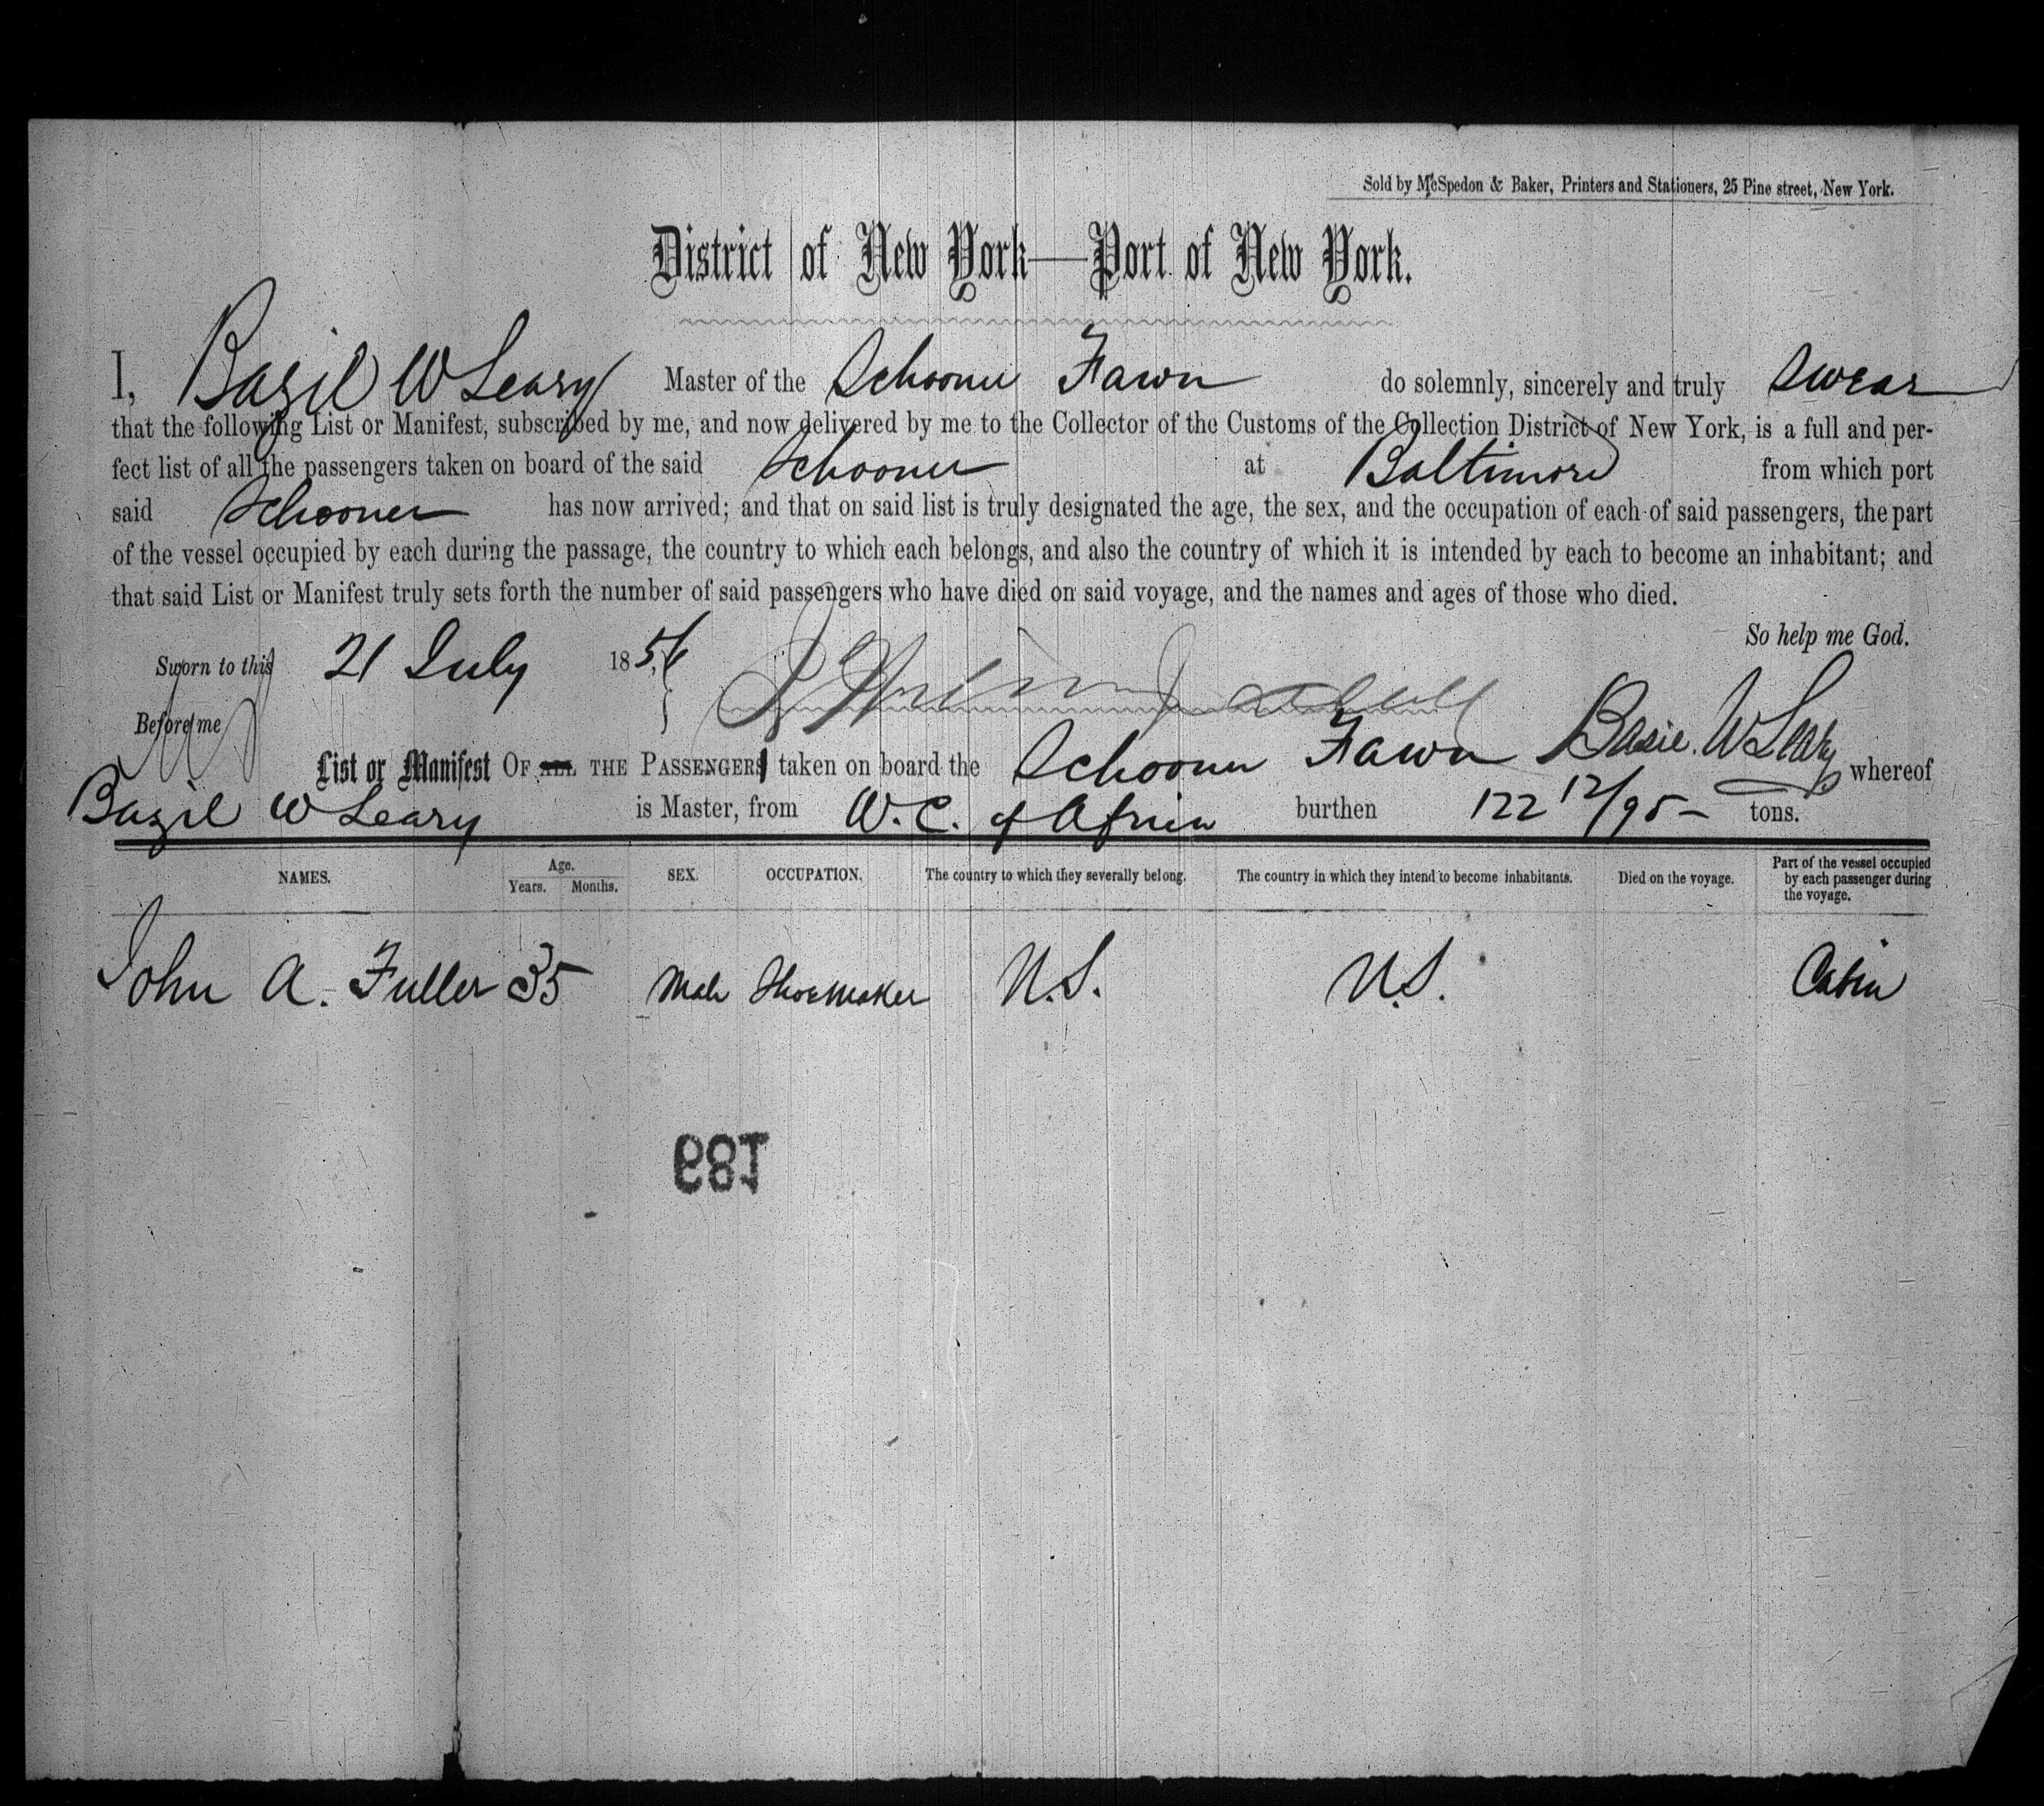 Sold by McSpedon & Baker, Printers and Stationers, 25 Pine street, New York.
District of New York—Port of New York.
I, Bazil W Leary Master of the Schooner Fawn do solemnly, sincerely and truly swear
that the following List or Manifest, subscribed by me, and now delivered by me to the Collector of the Customs of the Collection District of New York, is a full and per-
fect list of all the passengers taken on board of the said Schooner at Baltimore from which port
said Schooner has now arrived; and that on said list is truly designated the age, the sex, and the occupation of each of said passengers, the part
of the vessel occupied by each during the passage, the country to which each belongs, and also the country of which it is intended by each to become an inhabitant; and
that said List or Manifest truly sets forth the number of said passengers who have died on said voyage, and the names and ages of those who died.
So help me God.
Sworn to this 21 July 1856
Before me Basil W Leary
List or Manifest OF ALL THE PASSENGERS taken on board the Schooner Fawn whereof
Bazil W Leary is Master, from W. C. of Africa burthen 122 12/95 tons.
NAMES. Age. Years. Months. SEX. OCCUPATION. The country to which they severally belong. The country in which they intend to become inhabitants. Died on the voyage. Part of the vessel occupied by each passenger during the voyage.
John A. Fuller 35 Male Shoemaker U.S. U.S. Cabin
189